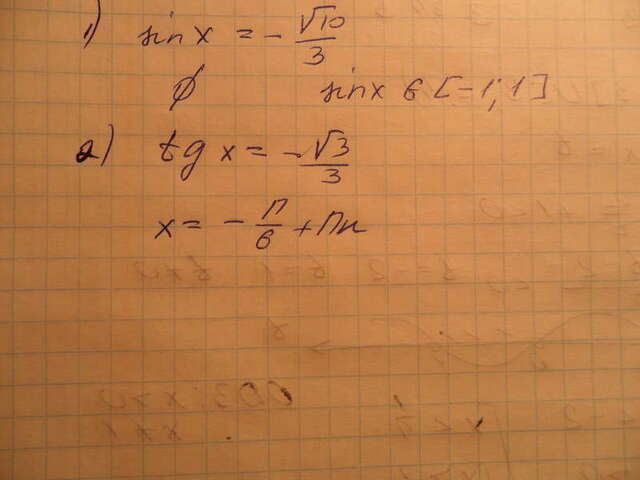 1) sin x = - √10/3
∅ sin x ∈ [-1; 1]
2) tg x = - √3/3
x = - π/6 + πn